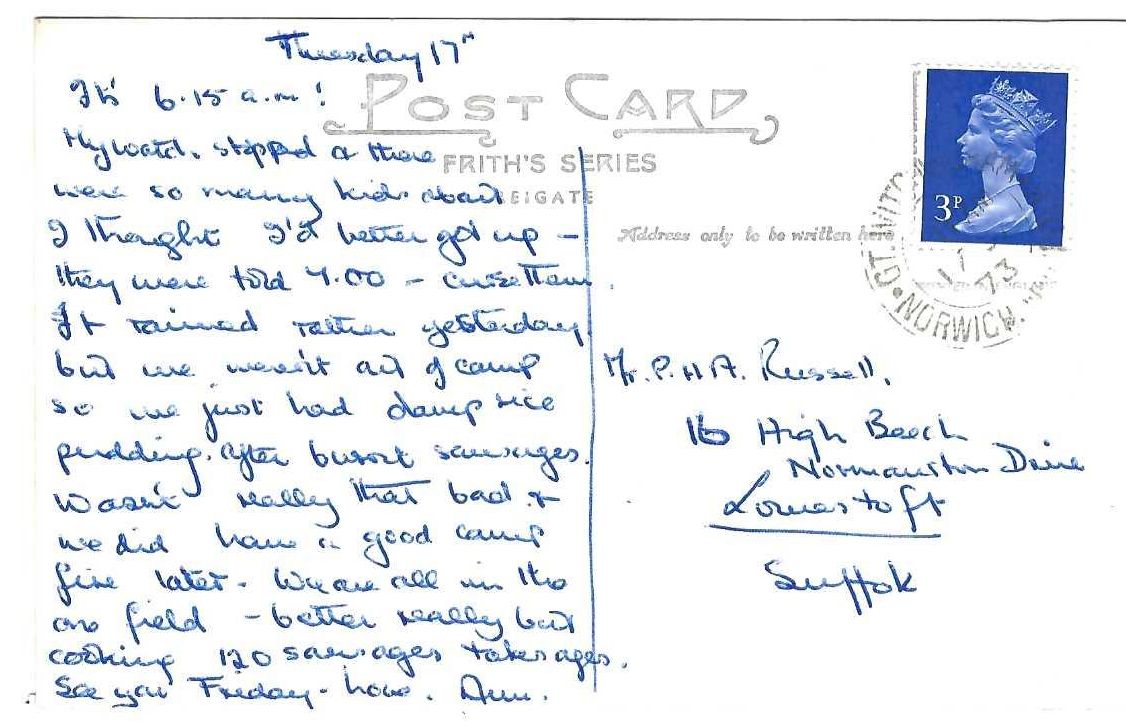 Thursday 17th
It's 6.15 a.m!
My watch stopped & there
were so many kids about
I thought I'd better get up -
they were told 7.00 - curse them.
It rained rather yesterday
but we weren't out of camp
so we just had damp rice
pudding. after burnt sausages.
Wasn't really that bad &
we did have a good camp
fire later. We are all in the
one field - better really but
cooking 120 sausages takes ages.
See you Friday - love. Ann.
POST CARD
FRITH'S SERIES
REIGATE
Address only to be written here
3P
GT. WITC
17
73
NORWICH.
Mr. P. H A. Russell,
16 High Beech
Normanston Drive
Lowestoft
Suffolk